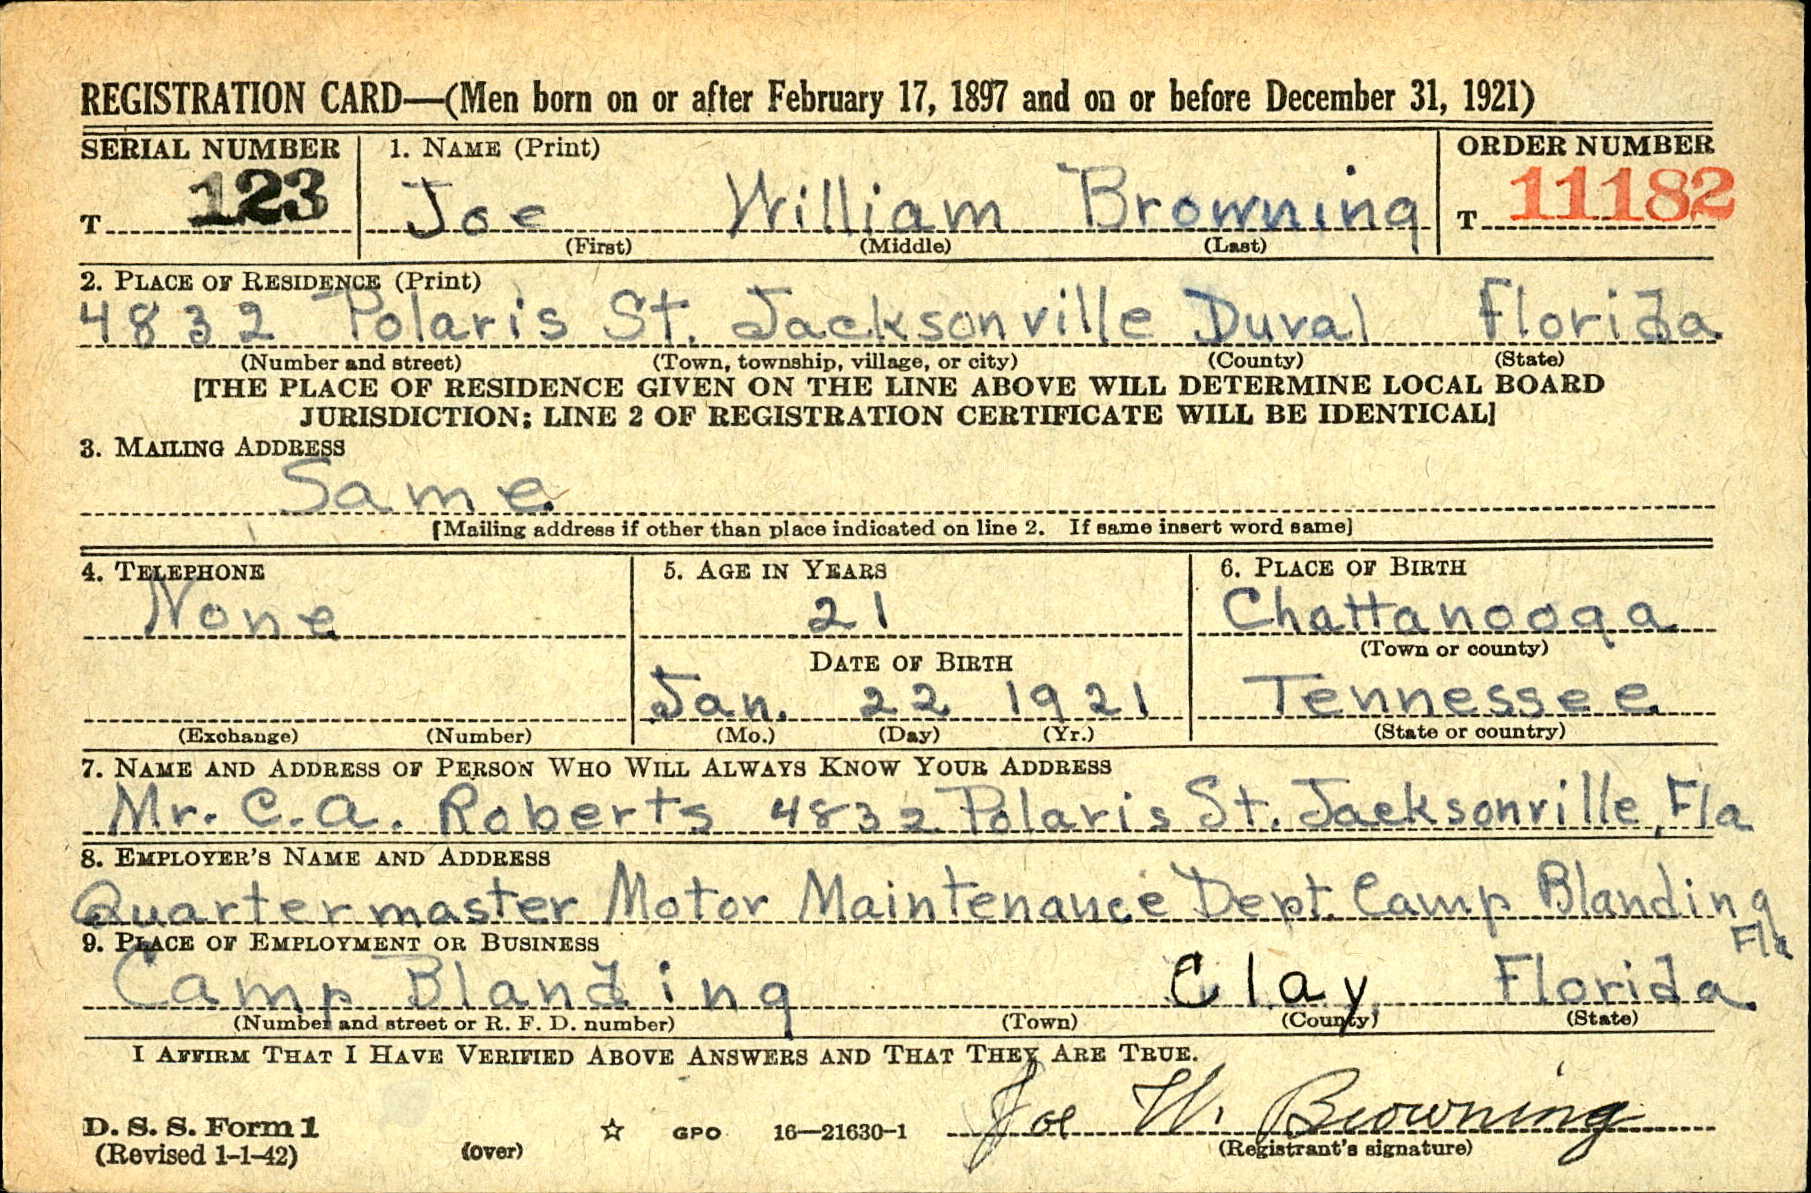 REGISTRATION CARD—(Men born on or after February 17, 1897 and on or before December 31, 1921)
SERIAL NUMBER 1. NAME (Print) ORDER NUMBER
T 123 Joe William Browning T 11182
(First) (Middle) (Last)
2. PLACE OF RESIDENCE (Print)
4832 Polaris St. Jacksonville Duval Florida
(Number and street) (Town, township, village, or city) (County) (State)
[THE PLACE OF RESIDENCE GIVEN ON THE LINE ABOVE WILL DETERMINE LOCAL BOARD
JURISDICTION; LINE 2 OF REGISTRATION CERTIFICATE WILL BE IDENTICAL]
3. MAILING ADDRESS
Same
[Mailing address if other than place indicated on line 2. If same insert word same]
4. TELEPHONE 5. AGE IN YEARS 6. PLACE OF BIRTH
None 21 Chattanooga
DATE OF BIRTH (Town or county)
Jan. 22 1921 Tennessee
(Exchange) (Number) (Mo.) (Day) (Yr.) (State or country)
7. NAME AND ADDRESS OF PERSON WHO WILL ALWAYS KNOW YOUR ADDRESS
Mr. C. A. Roberts 4832 Polaris St. Jacksonville, Fla
8. EMPLOYER'S NAME AND ADDRESS
Quartermaster Motor Maintenance Dept. Camp Blanding
Fla
9. PLACE OF EMPLOYMENT OR BUSINESS
Camp Blanding Clay Florida
(Number and street or R. F. D. number) (Town) (County) (State)
I AFFIRM THAT I HAVE VERIFIED ABOVE ANSWERS AND THAT THEY ARE TRUE.
Joe W. Browning
D. S. S. Form 1
(Revised 1-1-42) (over) ☆ GPO 16—21630-1 (Registrant's signature)